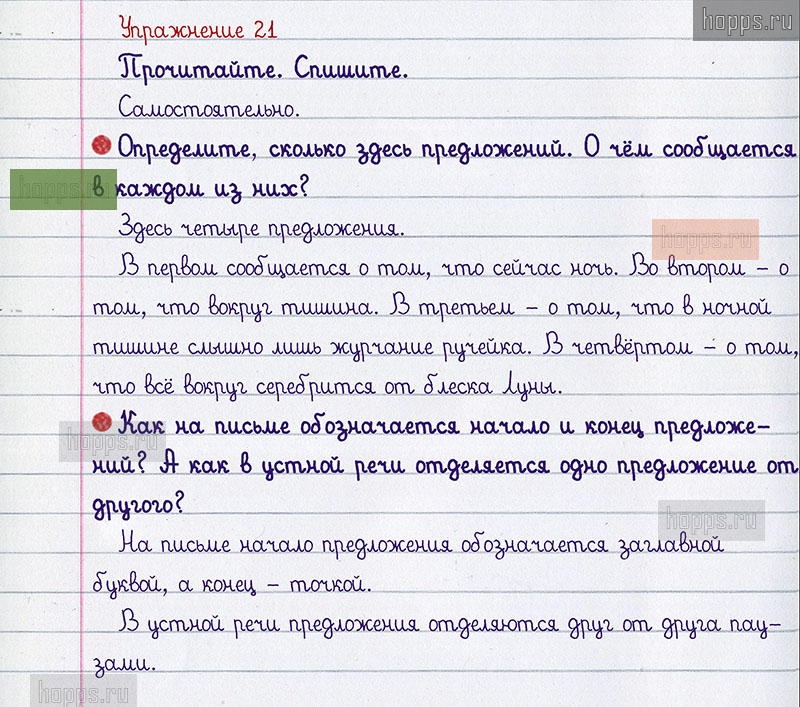 hopps.ru
Упражнение 21
Прочитайте. Спишите.
Самостоятельно.
Определите, сколько здесь предложений. О чём сообщается
hopps.ru
в каждом из них?
Здесь четыре предложения.
hopps.ru
В первом сообщается о том, что сейчас ночь. Во втором – о
том, что вокруг тишина. В третьем – о том, что в ночной
тишине слышно лишь журчание ручейка. В четвёртом – о том,
что всё вокруг серебрится от блеска Луны.
Как на письме обозначается начало и конец предложе-
hopps.ru
ний? А как в устной речи отделяется одно предложение от
другого?
hopps.ru
На письме начало предложения обозначается заглавной
буквой, а конец – точкой.
В устной речи предложения отделяются друг от друга пау-
зами.
hopps.ru